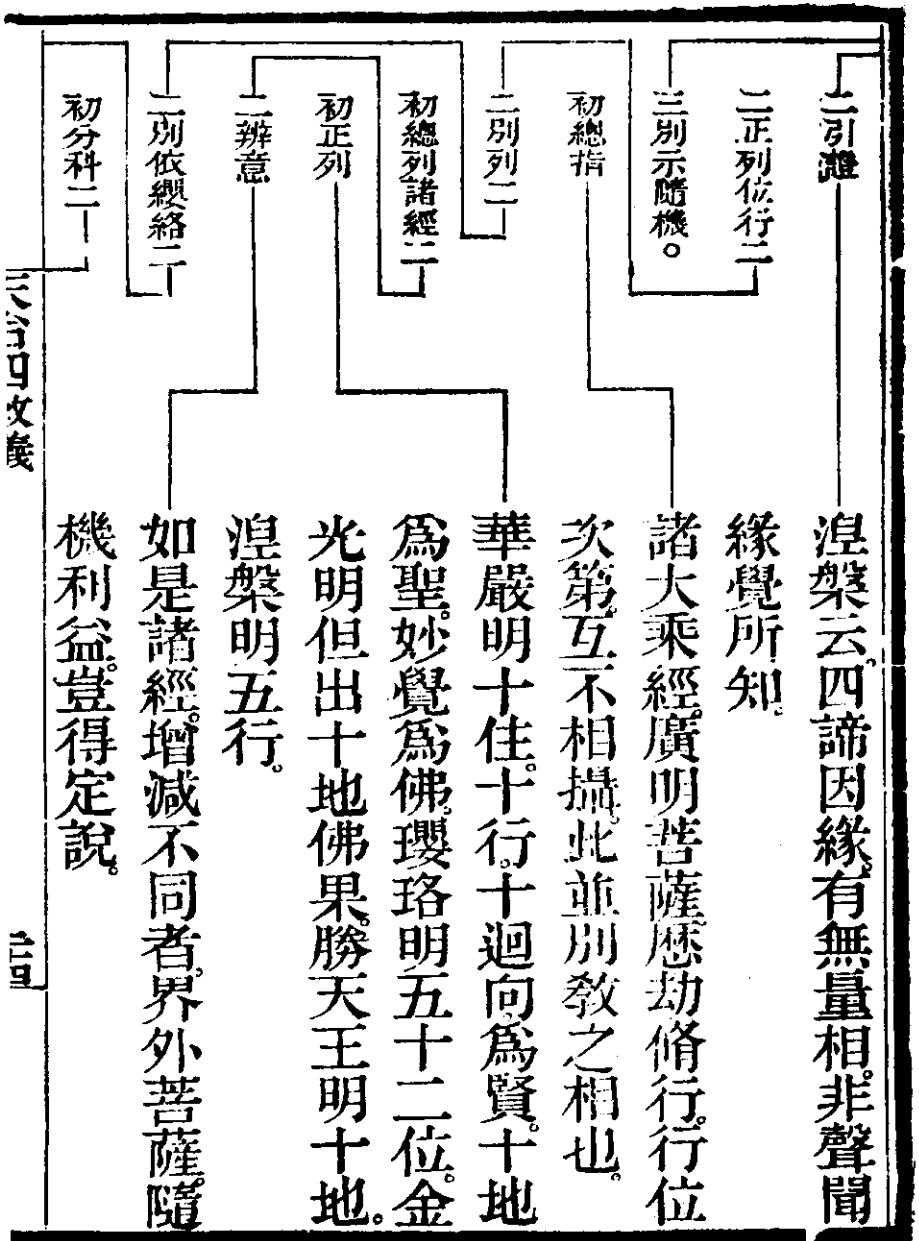 二引證
二正列位行二
三別示隨機。
初總指
二別列二
初總列諸經二
初正列
二辨意
二別依纓絡二
初分科二
涅槃云。四諦因緣。有無量相。非聲聞
緣覺所知。
諸大乘經。廣明菩薩。歷劫脩行。行位
次第。互不相攝。此並別敎之相也。
華嚴明十住。十行。十迴向。爲賢。十地
爲聖。妙覺爲佛。瓔珞明五十二位。金
光明但出十地佛果。勝天王明十地。
涅槃明五行。
如是諸經。增減不同者。界外菩薩。隨
機利益。豈得定說。
天台四敎義
二十四